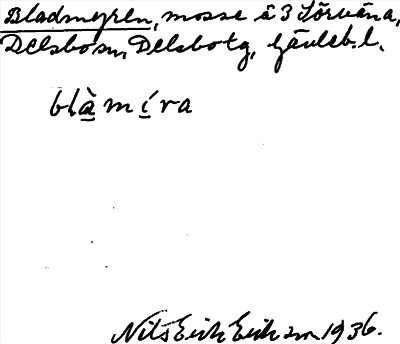 Bladmyren, mosse å 3 Sörvåna,
Delsbo sn, Delsbo tg, Gävleb. l.
blà mí ra
Nils Erik Erikson 1936.